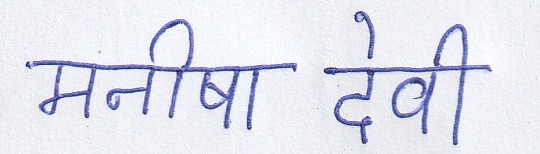 मनीषा देवी